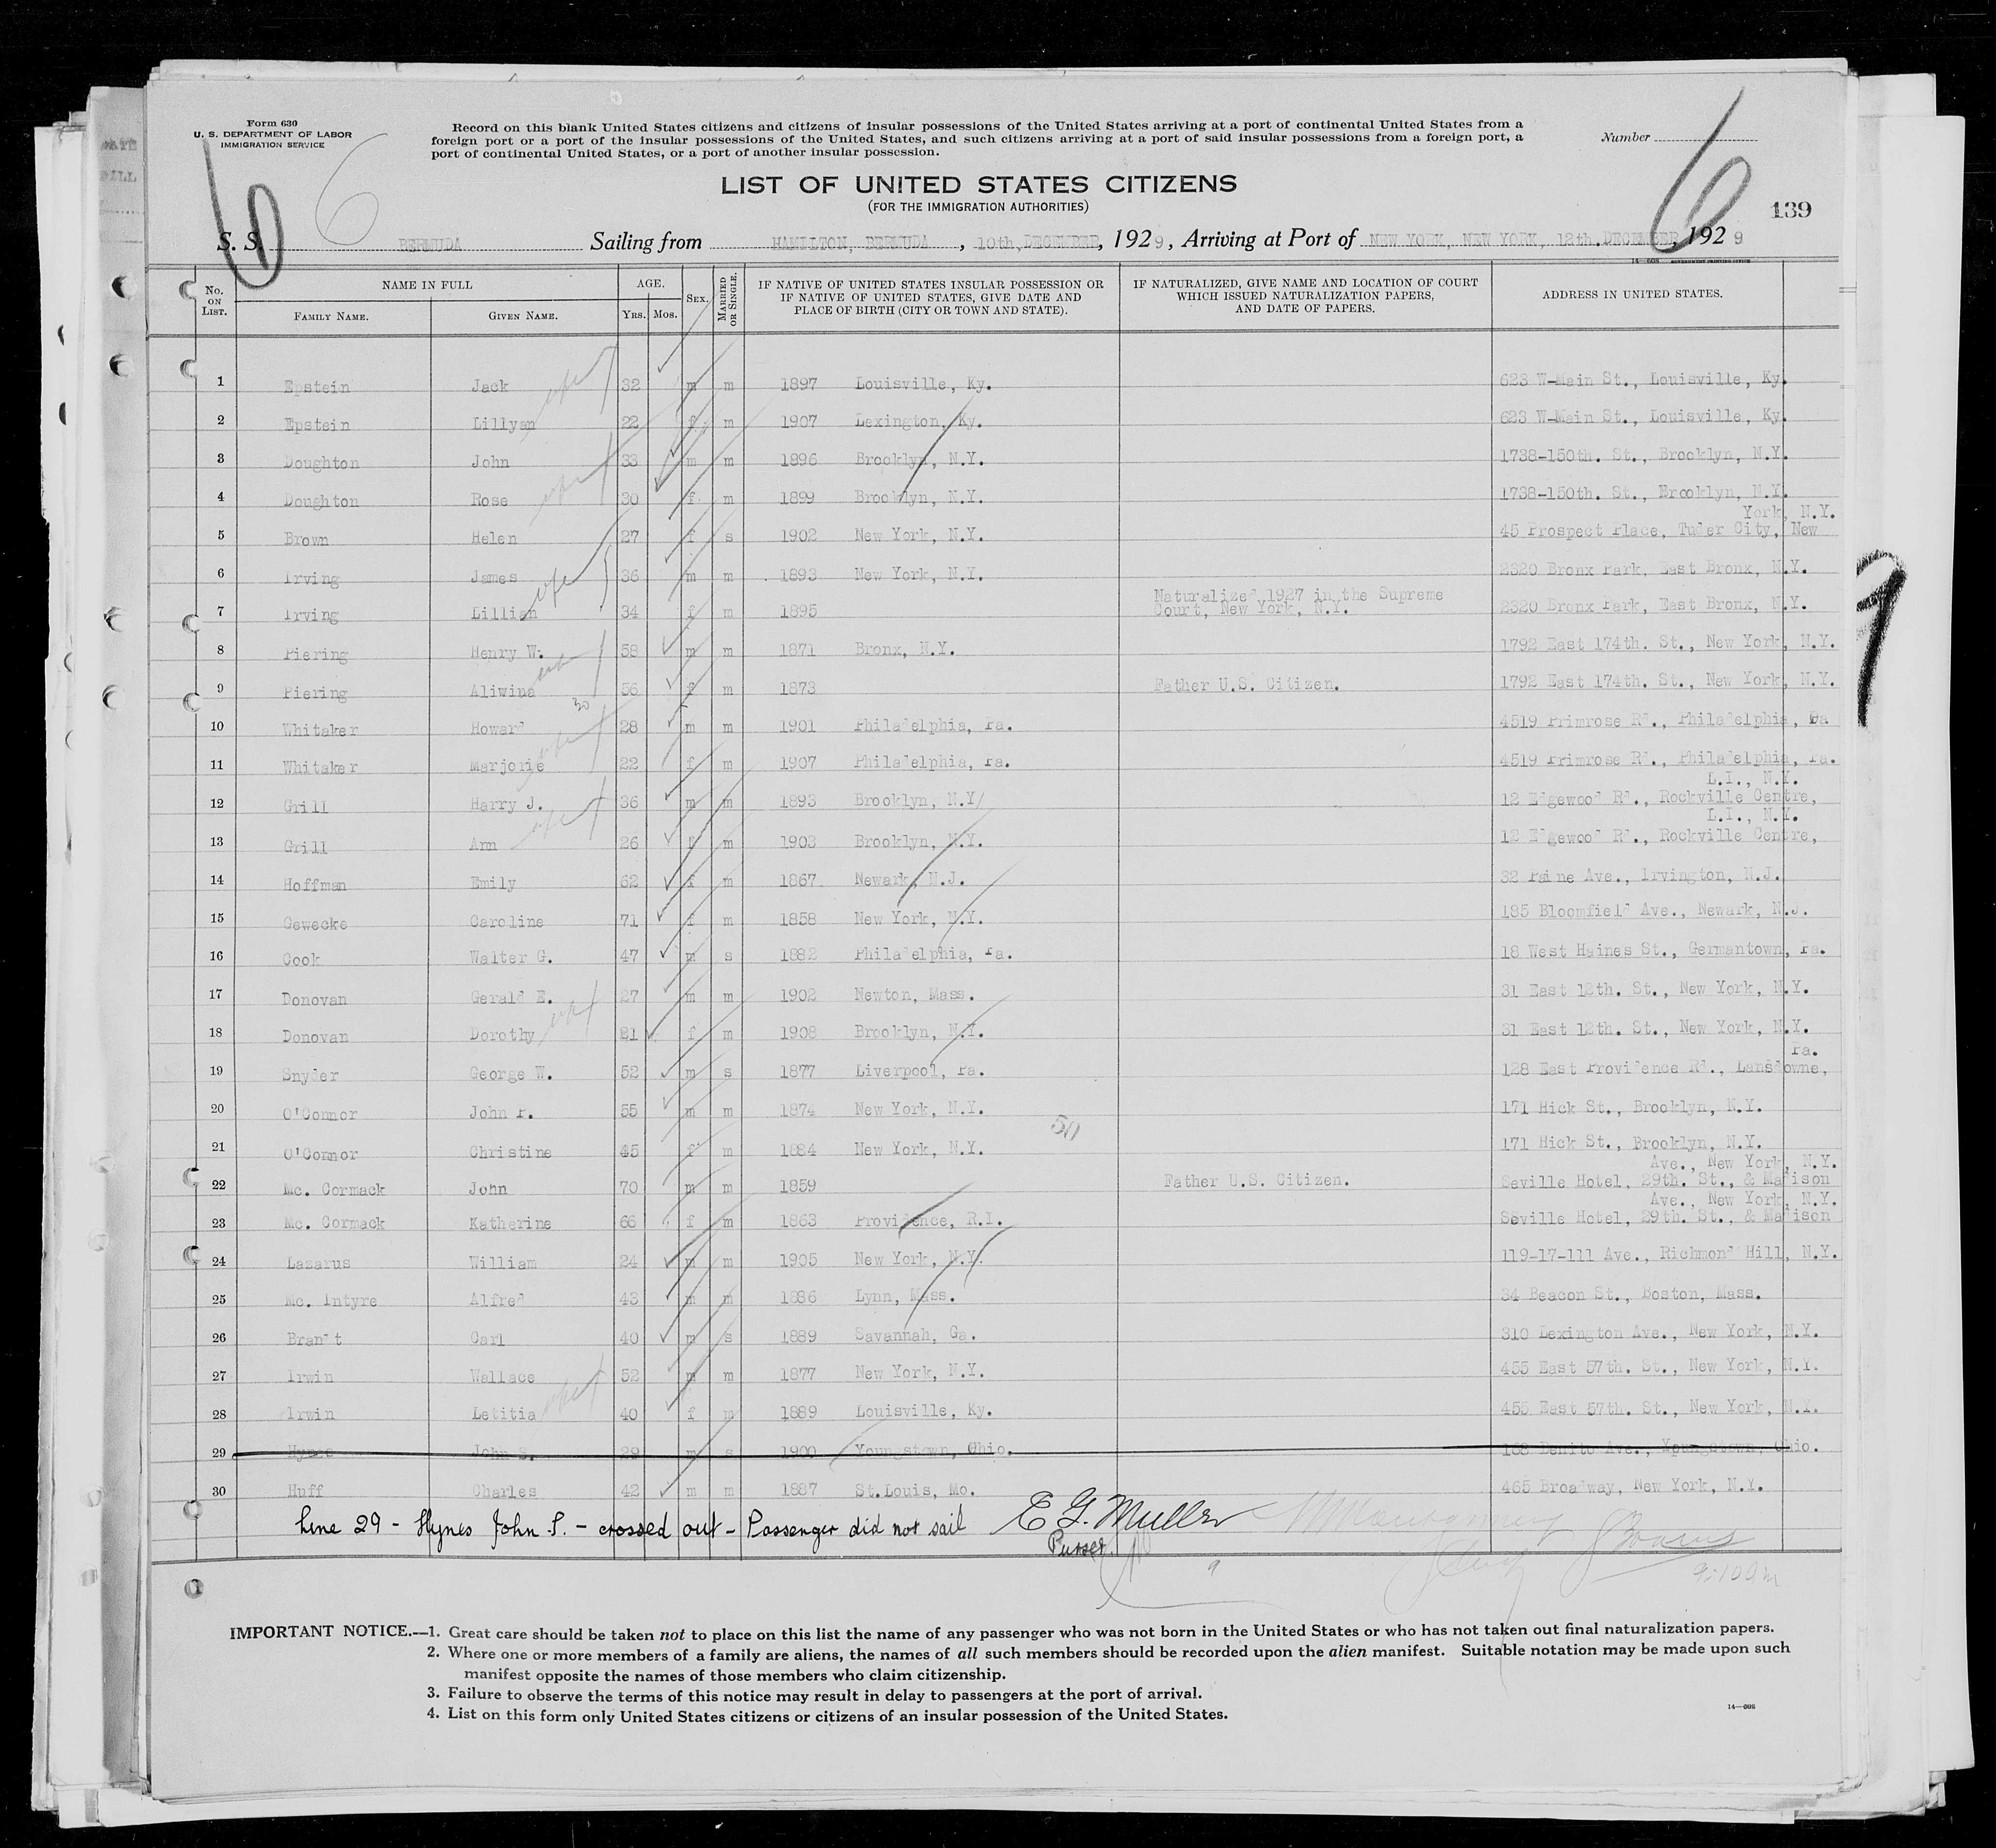 Form 630
U. S. DEPARTMENT OF LABOR
IMMIGRATION SERVICE
Record on this blank United States citizens and citizens of insular possessions of the United States arriving at a port of continental United States from a
foreign port or a port of the insular possessions of the United States, and such citizens arriving at a port of said insular possessions from a foreign port, a
port of continental United States, or a port of another insular possession.
Number
6 6 6
LIST OF UNITED STATES CITIZENS
(FOR THE IMMIGRATION AUTHORITIES)
139
S. S. BERMUDA Sailing from HAMILTON, BERMUDA, 10th, DECEMBER, 1929, Arriving at Port of NEW YORK, NEW YORK, 12th. DECEMBER, 1929
No. ON LIST. NAME IN FULL FAMILY NAME. GIVEN NAME. AGE. YRS. MOS. SEX. MARRIED OR SINGLE. IF NATIVE OF UNITED STATES INSULAR POSSESSION OR IF NATIVE OF UNITED STATES, GIVE DATE AND PLACE OF BIRTH (CITY OR TOWN AND STATE). IF NATURALIZED, GIVE NAME AND LOCATION OF COURT WHICH ISSUED NATURALIZATION PAPERS, AND DATE OF PAPERS. ADDRESS IN UNITED STATES.
1 Epstein Jack 32 m m 1897 Louisville, Ky. 623 W-Main St., Louisville, Ky.
wife
2 Epstein Lillyan 22 f m 1907 Lexington, Ky. 623 W-Main St., Louisville, Ky.
3 Doughton John 33 m m 1896 Brooklyn, N.Y. 1738-150th. St., Brooklyn, N.Y.
wife
4 Doughton Rose 30 f m 1899 Brooklyn, N.Y. 1738-150th. St., Brooklyn, N.Y.
York, N.Y.
5 Brown Helen 27 f s 1902 New York, N.Y. 45 Prospect Place, Tuder City, New
6 Irving James 36 m m 1893 New York, N.Y. 2320 Bronx Park, East Bronx, N.Y.
wife
7 Irving Lillian 34 f m 1895 Naturalized 1927 in the Supreme Court, New York, N.Y. 2320 Bronx Park, East Bronx, N.Y.
8 Piering Henry W. 58 m m 1871 Bronx, N.Y. 1792 East 174th. St., New York, N.Y.
wife
9 Piering Aliwina 56 f m 1873 Father U.S. Citizen. 1792 East 174th. St., New York, N.Y.
30
10 Whitaker Howard 28 m m 1901 Philadelphia, Pa. 4519 Primrose Rd., Philadelphia, Pa
wife
11 Whitaker Marjorie 22 f m 1907 Philadelphia, Pa. 4519 Primrose Rd., Philadelphia, Pa.
L.I., N.Y.
12 Grill Harry J. 36 m m 1893 Brooklyn, N.Y. 12 Edgewood Rd., Rockville Centre,
wife
L.I., N.Y.
13 Grill Ann 26 f m 1903 Brooklyn, N.Y. 12 Edgewood Rd., Rockville Centre,
14 Hoffman Emily 62 f m 1867 Newark, N.J. 32 Paine Ave., Irvington, N.J.
15 Gewecke Caroline 71 f m 1858 New York, N.Y. 185 Bloomfield Ave., Newark, N.J.
16 Cook Walter G. 47 m s 1882 Philadelphia, Pa. 18 West Haines St., Germantown, Pa.
17 Donovan Gerald E. 27 m m 1902 Newton, Mass. 31 East 12th. St., New York, N.Y.
wife
18 Donovan Dorothy 21 f m 1908 Brooklyn, N.Y. 31 East 12th. St., New York, N.Y.
Pa.
19 Snyder George W. 52 m s 1877 Liverpool, Pa. 128 East Providence Rd., Lansdowne,
20 O'Connor John P. 55 m m 1874 New York, N.Y. 171 Hick St., Brooklyn, N.Y.
50
21 O'Connor Christine 45 f m 1884 New York, N.Y. 171 Hick St., Brooklyn, N.Y.
Ave., New York, N.Y.
22 Mc. Cormack John 70 m m 1859 Father U.S. Citizen. Seville Hotel, 29th. St., & Madison
Ave., New York, N.Y.
23 Mc. Cormack Katherine 66 f m 1863 Providence, R.I. Seville Hotel, 29th. St., & Madison
24 Lazarus William 24 m m 1905 New York, N.Y. 119-17-111 Ave., Richmond Hill, N.Y.
25 Mc. Intyre Alfred 43 m m 1886 Lynn, Mass. 34 Beacon St., Boston, Mass.
26 Brandt Carl 40 m s 1889 Savannah, Ga. 310 Lexington Ave., New York, N.Y.
27 Irwin Wallace 52 m m 1877 New York, N.Y. 455 East 57th. St., New York, N.Y.
wife
28 Irwin Letitia 40 f m 1889 Louisville, Ky. 455 East 57th. St., New York, N.Y.
29 Hynes John S. 29 m s 1900 Youngstown, Ohio. 168 Benito Ave., Youngstown, Ohio.
30 Huff Charles 42 m m 1887 St.Louis, Mo. 465 Broadway, New York, N.Y.
Line 29 - Hynes John S. - crossed out - Passenger did not sail E G. Muller
Purser.
9
9:10 am
IMPORTANT NOTICE.—1. Great care should be taken not to place on this list the name of any passenger who was not born in the United States or who has not taken out final naturalization papers.
2. Where one or more members of a family are aliens, the names of all such members should be recorded upon the alien manifest. Suitable notation may be made upon such
manifest opposite the names of those members who claim citizenship.
3. Failure to observe the terms of this notice may result in delay to passengers at the port of arrival.
4. List on this form only United States citizens or citizens of an insular possession of the United States.
14—688